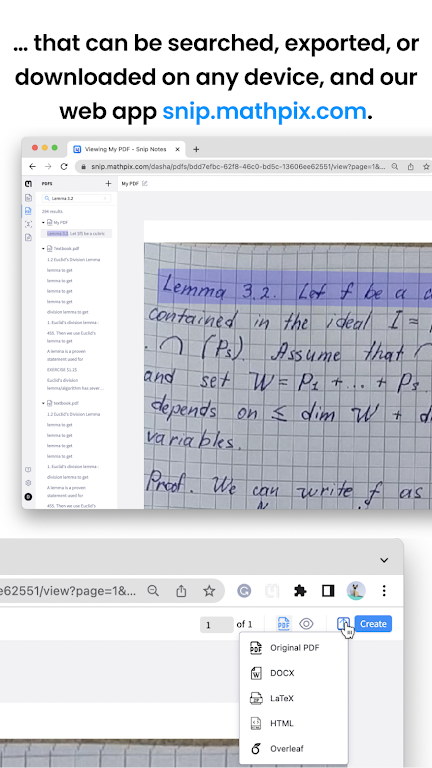 ... that can be searched, exported, or
downloaded on any device, and our
web app snip.mathpix.com.
Viewing My PDF - Snip Notes
snip.mathpix.com/dasha/pdfs/bdd7efbc-62f8-46c0-bd5c-13606ee62551/view?page=1&...
PDFS
My PDF
Lemma 3.2
294 results
My PDF
Lemma 3.2. Let 3f$ be a cubric
Textbook.pdf
1.2 Euclid's Division Lemma
lemma to get
lemma to get
lemma to get
lemma to get
division lemma to get
1. Euclid's division lemma -
455. Then we use Euclid's
A lemma is a proven
statement used for
EXERCISE 51.15
Euclid's division
lemma/algorithm has sever...
textbook.pdf
1.2 Euclid's Division Lemma
lemma to get
lemma to get
lemma to get
lemma to get
1. Euclid's division lemma -
division lemma to get
A lemma is a proven
statement used for
455. Then we use Euclid's
Lemma 3.2. Let f be a
contained in the ideal I =
. ∩ (Ps). Assume that
and set W = P1 + ... + Ps.
depends on ≤ dim W +
variables.
Proof. We can write f as
e62551/view?page=1&...
1 of 1
PDF
Create
PDF Original PDF
W DOCX
LaTeX
HTML
Overleaf